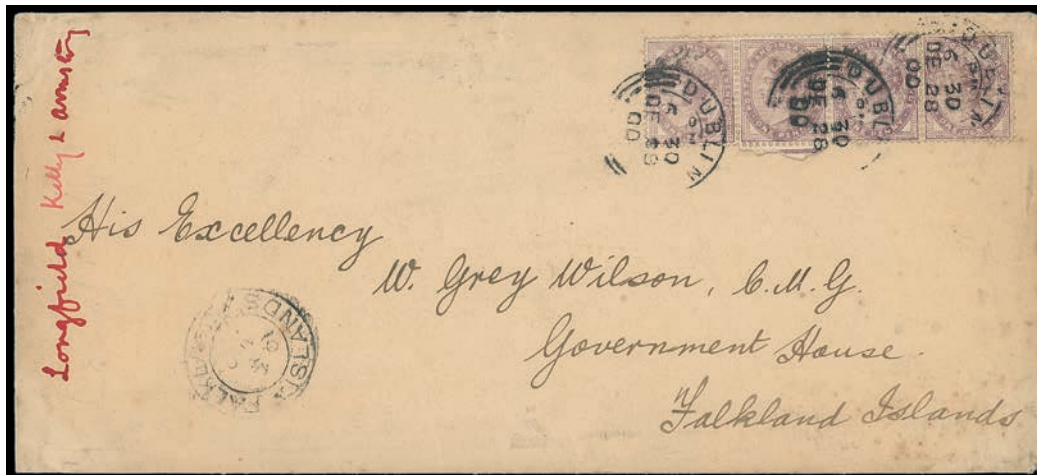 Longfield, Kelly & Armstrong
DUBLIN
6 30 PM
DE 28
00
DUBLIN
6 30 PM
DE 28
00
DUBLIN
6 30 PM
DE 28
00
His Excellency
W. Grey Wilson, C.M.G.
Government House.
Falkland Islands
FALKLAND ISLANDS
01